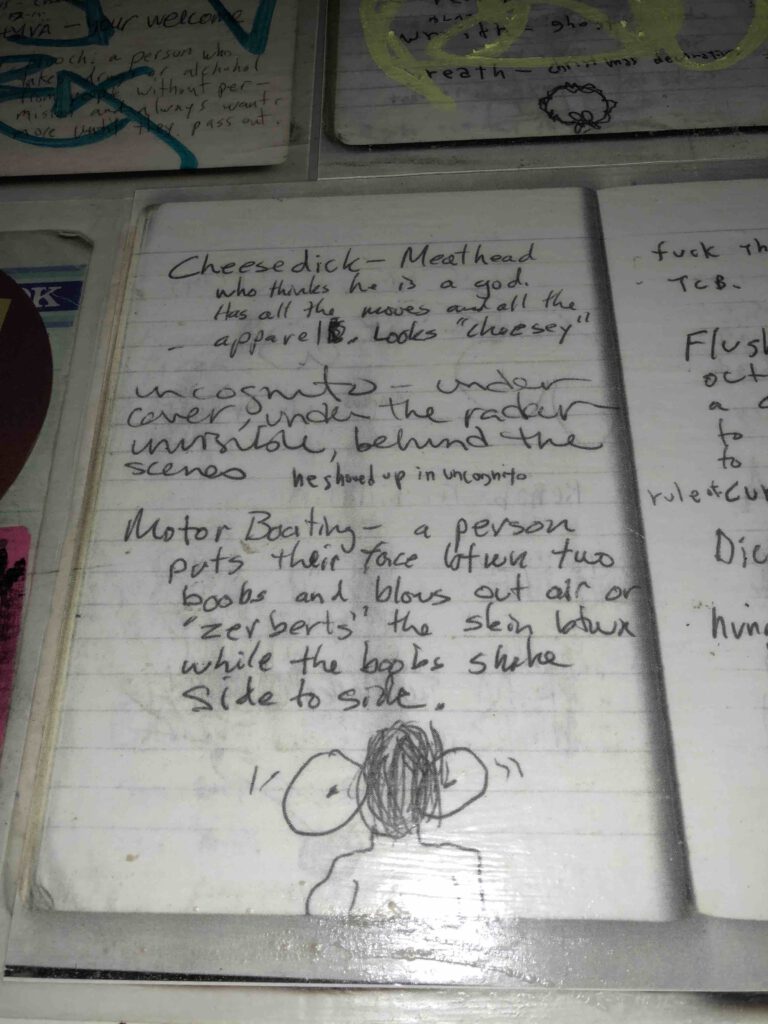 your welcome
a person who
alcohol
without per-
and always wants
more until they pass out.
ghost
christmas decoration
OK
Cheesedick - Meathead
who thinks he is a god.
Has all the moves and all the
apparel. Looks "cheesey"
uncognito - under
cover, under the radar
invisible, behind the
scenes
he showed up in uncognito
Motor Boating - a person
puts their face btwn two
boobs and blows out air or
"zerberts" the skin btwx
while the boobs shake
side to side.
fuck Th
TCB.
Flush
oct
a
to
to
rule of Cur
Dic
hung